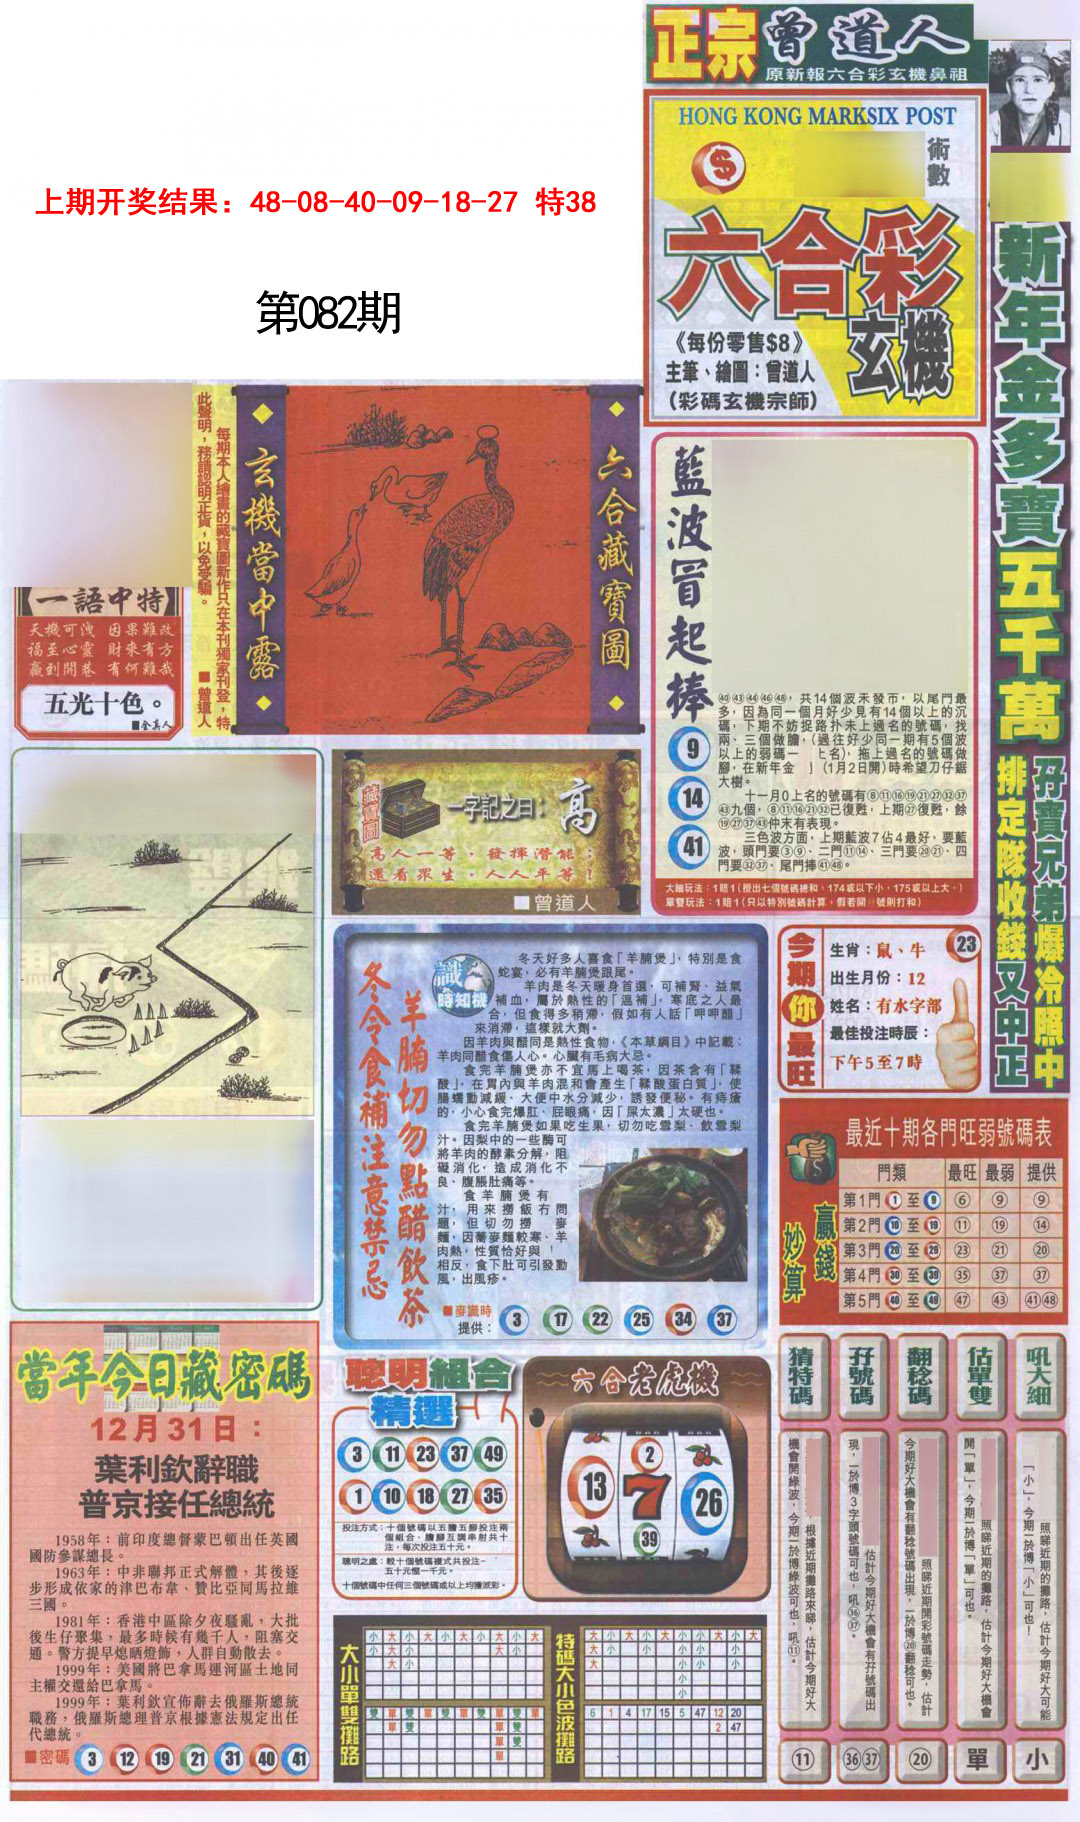 正宗曾道人
原新報六合彩玄機鼻祖
HONG KONG MARKSIX POST
術數
六合彩
玄機
《每份零售$8》
主筆、繪圖：曾道人
（彩碼玄機宗師）
上期开奖结果：48-08-40-09-18-27 特38
第082期
新年金多寶五千萬
孖寶兄弟爆冷照中
排定隊收錢又中正
每期本人繪畫的藏寶圖新作只在本刊獨家刊登，特
此聲明，務請認明正貨，以免受騙。
■曾道人
六合藏寶圖
玄機當中露
一語中特
天機可洩 因果難改
福至心靈 財來有方
贏到開巷 有何難哉
五光十色。
藍波冒起捧
9
14
41
㊵㊸㊹㊻㊽，共14個波未發市，以尾門最
多，因為同一個月好少見有14個以上的沉
碼，下期不妨捉路扑未上過名的號碼，找
兩、三個做膽，（過往好少同一期有5個波
以上的弱碼一
上名），拖上過名的號碼做
腳，在新年金
（1月2日開）時希望刀仔鋸
大樹。
十一月0上名的號碼有⑧⑪⑯⑲㉑㉗㉜㊲
㊸九個，⑧⑪⑯㉑㉜已復甦，上期㉗復甦，餘
⑲㉗㊲㊸仲末有表現。
三色波方面，上期藍波7佔4最好，要藍
波，頭門要③⑨、二門⑪⑭、三門要⑳㉑、四
門要㉜㊲、尾門捧㊶㊽。
大細玩法：1賠1（攪出七個號碼總和，174或以下小，175或以上大。）
單雙玩法：1賠1（只以特別號碼計算，假若開
號則打和）
藏寶圖
一字記之曰：高
高人一等，發揮潛能；
還看眾生，人人平等！
■曾道人
今期你最旺
生肖：鼠、牛
23
出生月份：12
姓名：有水字部
最佳投注時辰：
下午5至7時
識時知機
羊腩切勿點醋飲茶
冬令食補注意禁忌
冬天好多人喜食「羊腩煲」，特別是食
蛇宴，必有羊腩煲跟尾。
羊肉是冬天暖身首選，可補腎、益氣
補血，屬於熱性的「溫補」，寒底之人最
合，但食得多稍滯，假如有人話「呷呷醋」
來消滯，這樣就大劑。
因羊肉與醋同是熱性食物，《本草綱目》中記載：
羊肉同醋食傷人心。心臟有毛病大忌。
食完羊腩煲亦不宜馬上喝茶，因茶含有「鞣
酸」，在胃內與羊肉混和會產生「鞣酸蛋白質」，使
腸蠕動減緩、大便中水分減少，誘發便秘。有痔瘡
的，小心食完爆肛、屁眼痛，因「屎太濃」太硬也。
食完羊腩煲如果吃生果，切勿吃雪梨、飲雪梨
汁。因梨中的一些酶可
將羊肉的酵素分解，阻
礙消化，造成消化不
良、腹脹肚痛等。
食羊腩煲有
汁，用來撈飯冇問
題，但切勿撈
麥
麵，因蕎麥麵較寒、羊
肉熱，性質恰好與！
相反，食下肚可引發動
風，出風疹。
■麥識時
提供：
3 17 22 25 34 37
最近十期各門旺弱號碼表
贏錢妙算
門類 最旺 最弱 提供
第1門 1 至 9 ⑥ ⑨ ⑨
第2門 10 至 19 ⑪ ⑲ ⑭
第3門 20 至 29 ㉓ ㉑ ⑳
第4門 30 至 39 ㉟ ㊲ ㊲
第5門 40 至 49 ㊼ ㊸ ㊶㊽
當年今日藏密碼
12月31日：
葉利欽辭職
普京接任總統
1958年：前印度總督蒙巴頓出任英國
國防參謀總長。
1963年：中非聯邦正式解體，其後逐
步形成依家的津巴布韋、贊比亞同馬拉維
三國。
1981年：香港中區除夕夜騷亂，大批
後生仔聚集，最多時候有幾千人，阻塞交
通。警方提早熄晒燈飾，人群自動散去。
1999年：美國將巴拿馬運河區土地同
主權交還給巴拿馬。
1999年：葉利欽宣佈辭去俄羅斯總統
職務，俄羅斯總理普京根據憲法規定出任
代總統。
■密碼 3 12 19 21 31 40 41
聰明組合
精選
3 11 23 37 49
1 10 18 27 35
投注方式：十個號碼以五膽五腳投注兩
個組合，膽腳互調串射共十
注，每次投注五十元。
聰明之處：較十個號碼複式共投注一
五十元慳一千元。
十個號碼中任何三個號碼或以上均獲派彩。
六合老虎機
13
2
7
39
26
大小單雙攤路
小 大 小 大 小 大 小 大 大
大 小 大
大 小
雙 單 雙 單 雙 單 雙 單 雙 單
單 雙 單 雙
單 雙
單
特碼大小色波攤路
6 1 4 17 15 5 47 12 20
2 47
猜特碼
機會開綠波，今期一於博綠波可也，吼⑪。
根據近期攤路來睇，估計今期好大
⑪
孖號碼
現，一於博3字頭號碼可也，吼㊱㊲。
估計今期好大機會有孖號碼出
㊱㊲
翻稔碼
今期好大機會有翻稔號碼出現，一於博⑳翻稔可也。
照睇近期開彩號碼走勢，估計
⑳
估單雙
開「單」，今期一於博「單」可也。
照睇近期的攤路，估計今期好大機會
單
吼大細
「小」，今期一於博「小」可也！
照睇近期的攤路，估計今期好大可能
小